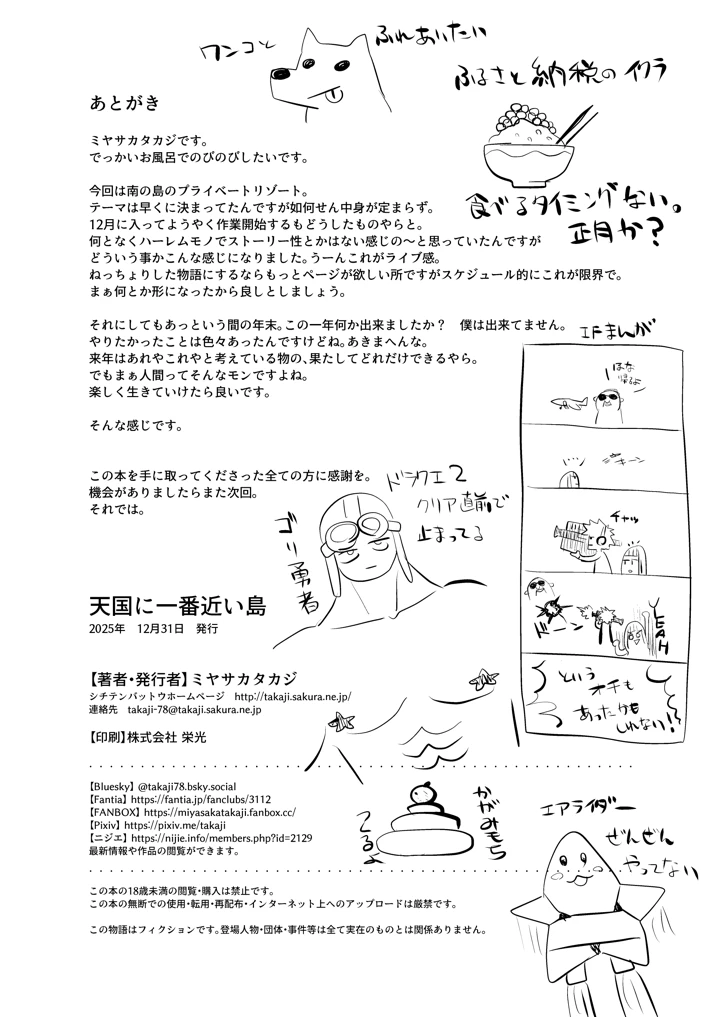 ワンコと
ふれあいたい
ふるさと納税のイクラ
食べるタイミングない。
正月か？
あとがき
ミヤサカタカジです。
でっかいお風呂でのびのびしたいです。
今回は南の島のプライベートリゾート。
テーマは早くに決まってたんですが如何せん中身が定まらず。
12月に入ってようやく作業開始するもどうしたものやらと。
何となくハーレムモノでストーリー性とかはない感じの〜と思っていたんですが
どういう事かこんな感じになりました。うーんこれがライブ感。
ねっちょりした物語にするならもっとページが欲しい所ですがスケジュール的にこれが限界で。
まぁ何とか形になったから良しとしましょう。
それにしてもあっという間の年末。この一年何か出来ましたか？　僕は出来てません。
やりたかったことは色々あったんですけどね。あきまへんな。
来年はあれやこれやと考えている物の、果たしてどれだけできるやら。
でもまぁ人間ってそんなモンですよね。
楽しく生きていけたら良いです。
そんな感じです。
この本を手に取ってくださった全ての方に感謝を。
機会がありましたらまた次回。
それでは。
IFまんが
ほな
帰るよ
キーン
チャッ
ドーン
YEAH
という
オチも
あったかも
しれない！
ドラクエ2
クリア直前で
止まってる
ゴリ勇者
天国に一番近い島
2025年　12月31日　発行
【著者・発行者】ミヤサカタカジ
シチテンバットウホームページ　http://takaji.sakura.ne.jp/
連絡先　takaji-78@takaji.sakura.ne.jp
【印刷】株式会社 栄光
【Bluesky】@takaji78.bsky.social
【Fantia】https://fantia.jp/fanclubs/3112
【FANBOX】https://miyasakatakaji.fanbox.cc/
【Pixiv】https://pixiv.me/takaji
【ニジエ】https://nijie.info/members.php?id=2129
最新情報や作品の閲覧ができます。
かがみもち
てるよ
エアライダー
ぜんぜん
やってない
この本の18歳未満の閲覧・購入は禁止です。
この本の無断での使用・転用・再配布・インターネット上へのアップロードは厳禁です。
この物語はフィクションです。登場人物・団体・事件等は全て実在のものとは関係ありません。